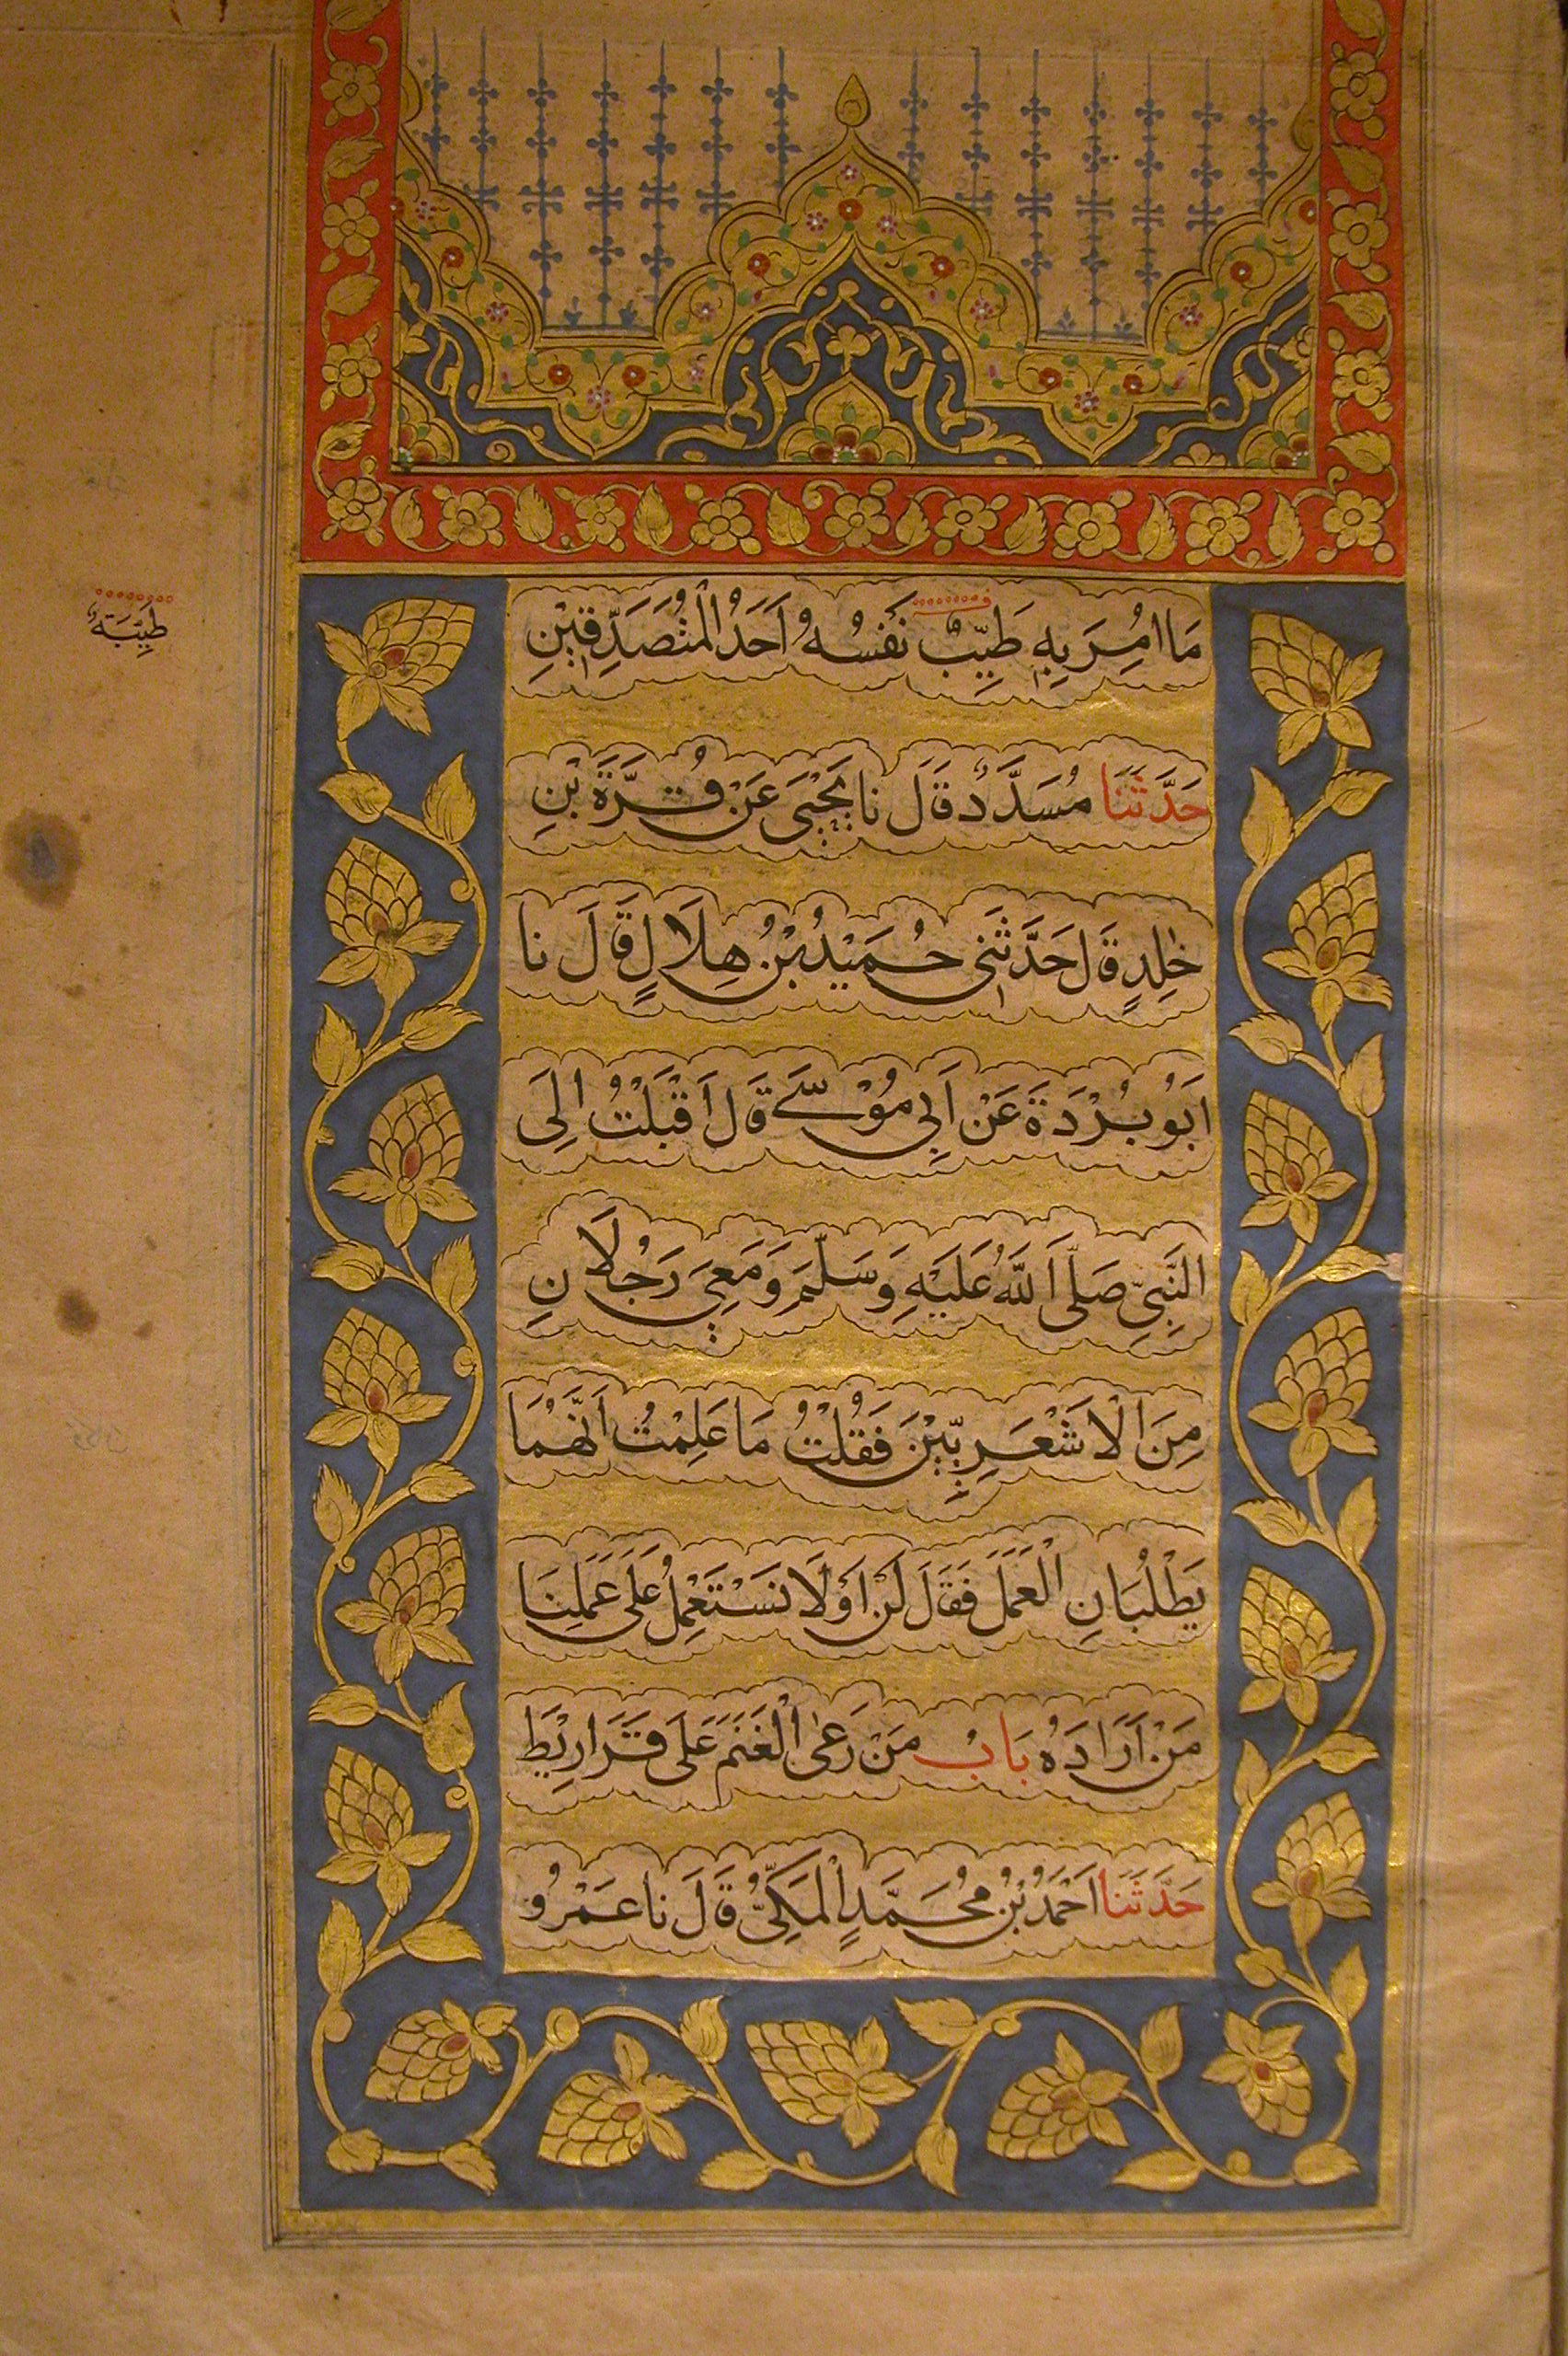 مَا اُمِرَ بِهٖ طَيِّبٌ نَفْسُهُ اَحَدُ الْمُتَصَدِّقِيْنِ
طَيِّبَةٌ
حَدَّثَنَا مُسَدَّدٌ قَالَ نا يَحْيَى عَنْ قُرَّةَ بْنِ
خٰلِدٍ قَالَ حَدَّثَنِى حُمَيْدُ بْنُ هِلَالٍ قَالَ نا
اَبُوْ بُرْدَةَ عَنْ اَبِى مُوْسٰے قَالَ اَقْبَلْتُ اِلَى
النَّبِىِّ صَلَّى اللّٰهُ عَلَيْهِ وَسَلَّمَ وَمَعِىَ رَجُلَانِ
مِنَ الْاَشْعَرِيِّيْنَ فَقُلْتُ مَا عَلِمْتُ اَنَّهُمَا
يَطْلُبَانِ الْعَمَلَ فَقَالَ لَنْ اَوْ لَا نَسْتَعْمِلُ عَلَى عَمَلِنَا
مَنْ اَرَادَهُ بَابُ مَنْ رَعٰى الْغَنَمَ عَلَى قَرَارِيْطَ
حَدَّثَنَا اَحْمَدُ بْنُ مُحَمَّدٍ الْمَكِّىُّ قَالَ نا عَمْرُو